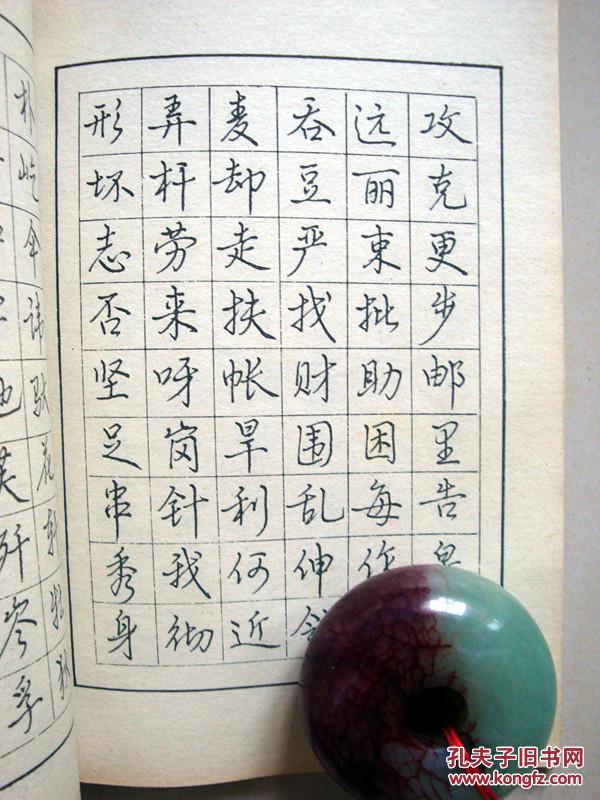 形弄麦吞远攻
坏杆却豆丽克
志劳走严束更
否来扶找批步
坚呀帐财助邮
足岗旱围困里
串针利乱每告
秀我何伸作
身彻近
朴
屹
伞
讳
驮
花
芙
岑
孚
孔夫子旧书网
www.kongfz.com